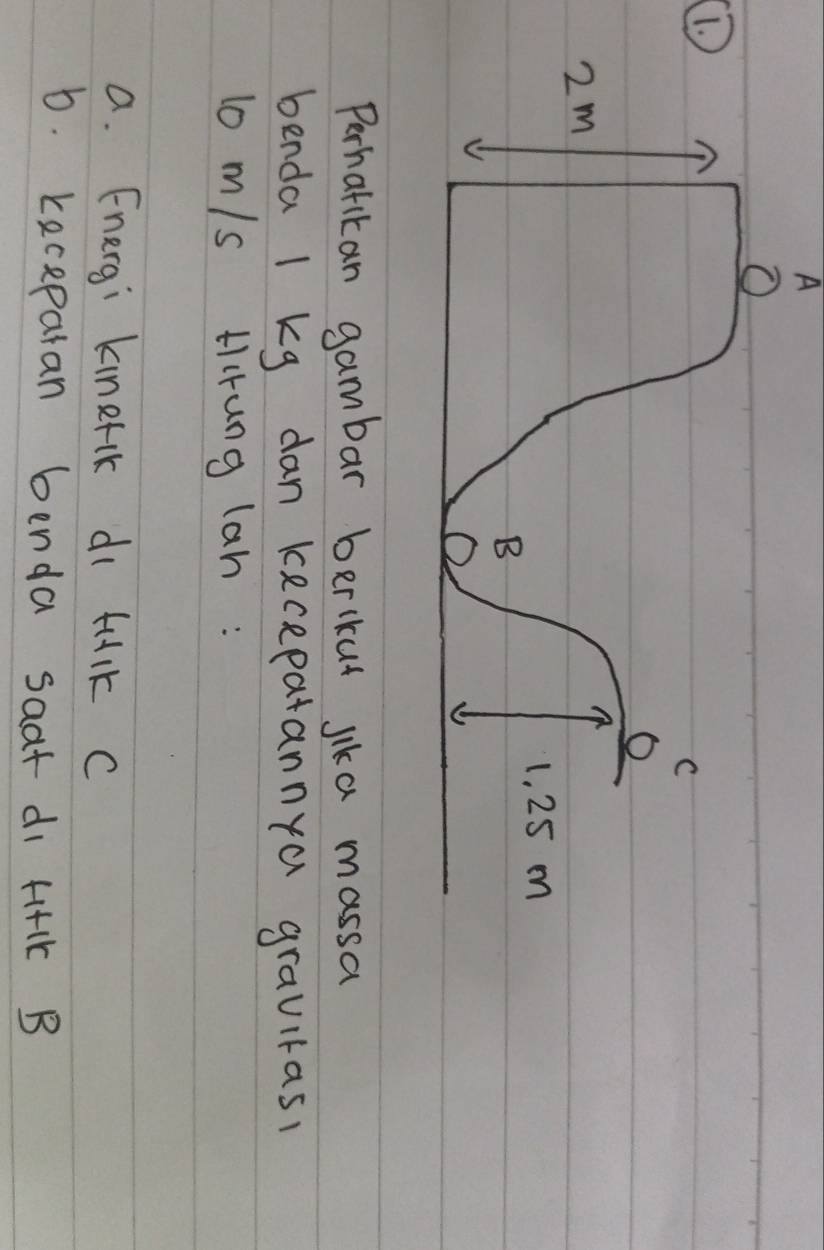 1.
A
2 m
B
C
1.25 m
Perhatikan gambar berikut jika massa
benda 1 kg dan kecepatannya gravitasi
10 m/s Hitung lah :
a. Energi kinetik di titik C
b. kecepatan benda saat di titik B